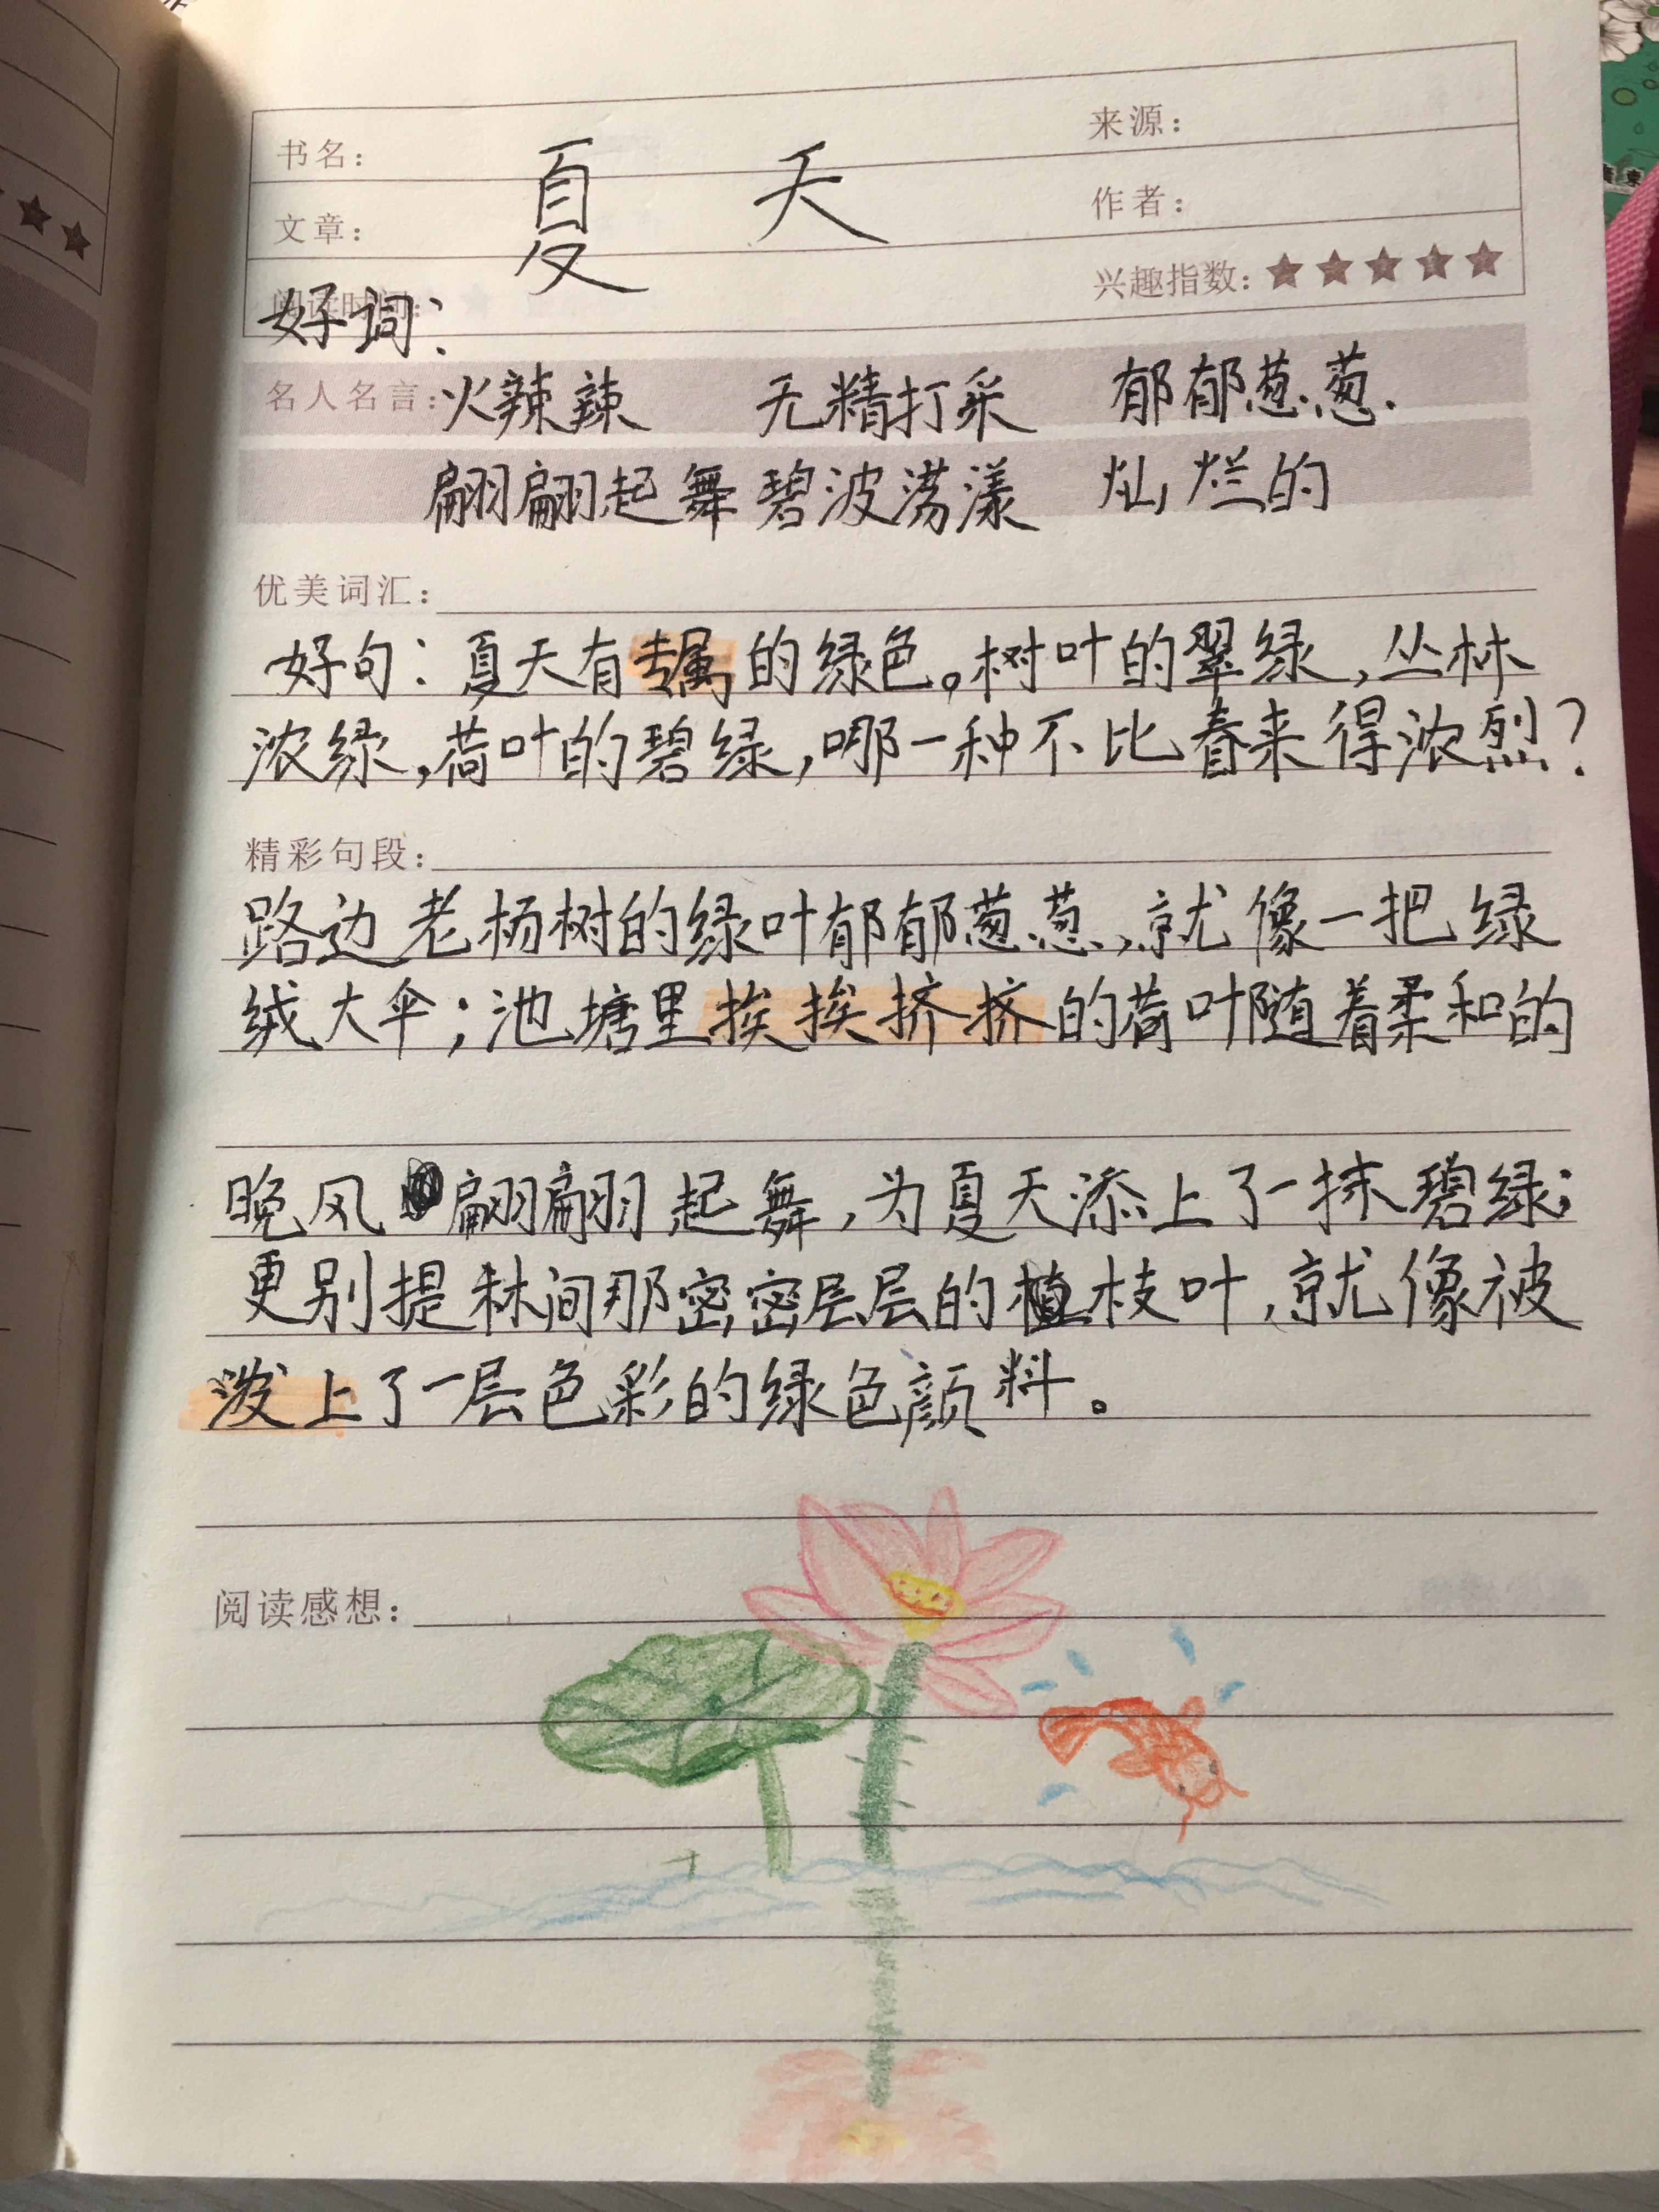 书名：
来源：
夏 天
文章：
作者：
阅读时间：
兴趣指数：★★★★★
好词：
名人名言：
火辣辣 无精打采 郁郁葱葱.
翩翩起舞 碧波荡漾 灿烂的
优美词汇：
好句：夏天有专属的绿色。树叶的翠绿，丛林
浓绿，荷叶的碧绿，哪一种不比春来得浓烈？
精彩句段：
路边老杨树的绿叶郁郁葱葱，就像一把绿
绒大伞；池塘里挨挨挤挤的荷叶随着柔和的
晚风翩翩起舞，为夏天添上了一抹碧绿；
更别提林间那密密层层的枝叶，就像被
泼上了一层色彩的绿色颜料。
阅读感想：